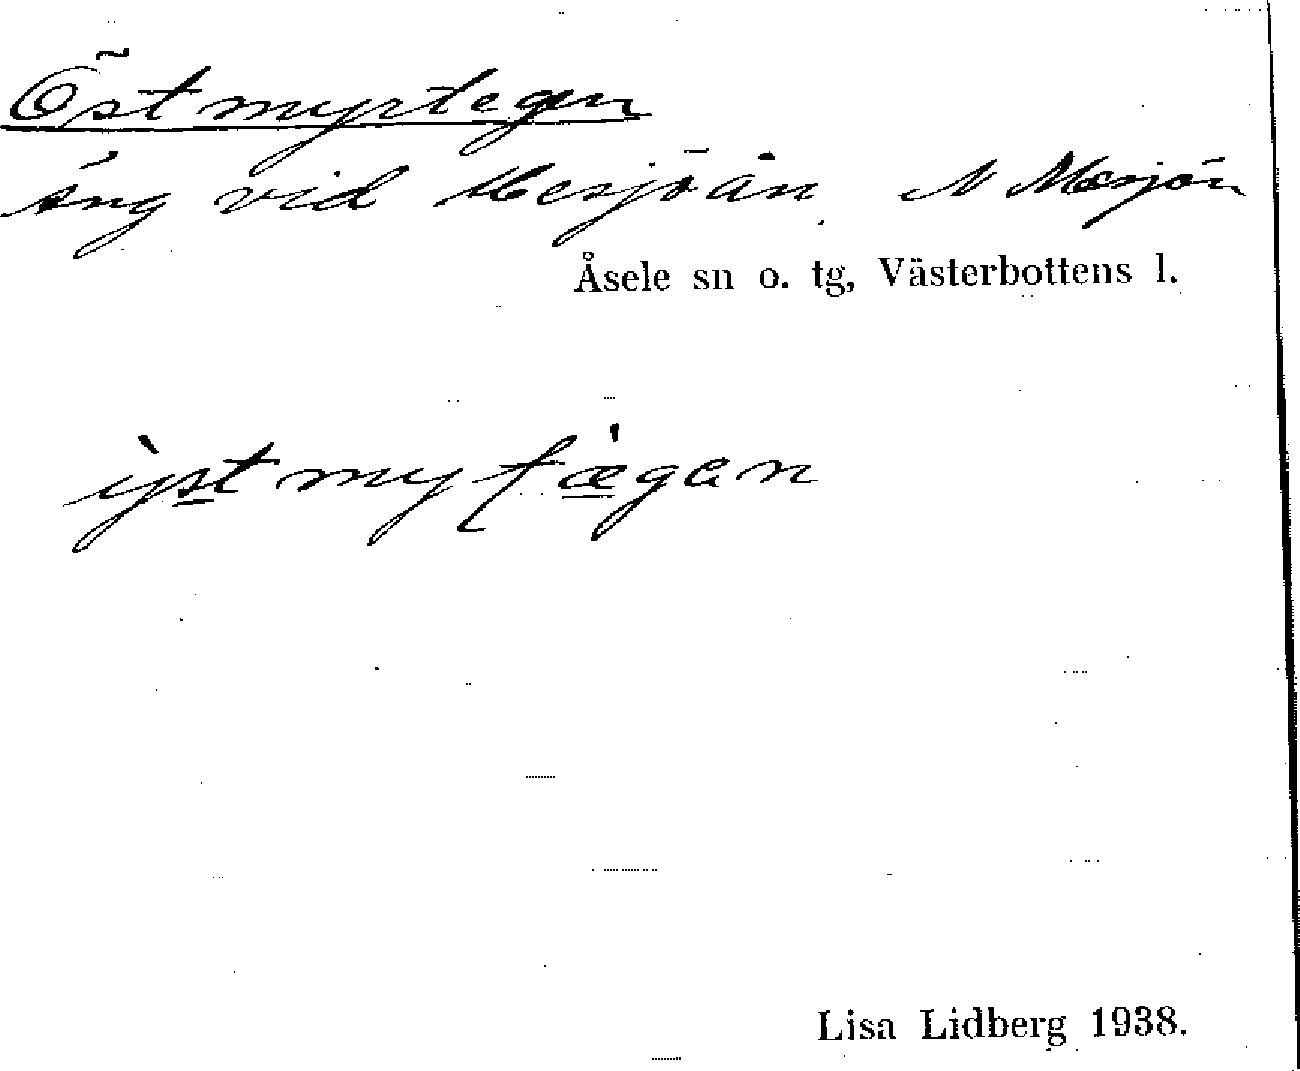 Östmyrtegen
äng vid Mesjöån. N Mesjön
Åsele sn o. tg, Västerbottens l.
ỳstmyṭæ̀gan
Lisa Lidberg 1938.